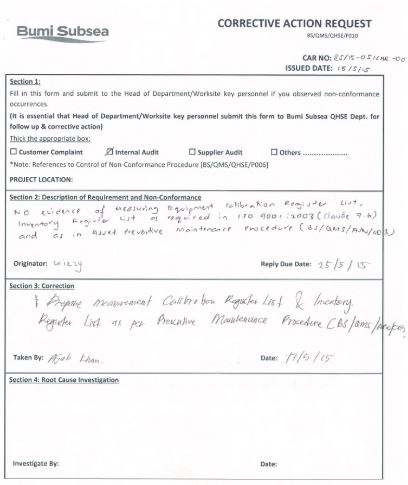 Bumi Subsea
CORRECTIVE ACTION REQUEST
BS/QMS/QHSE/P010
CAR NO: BS/15-051CAR-00
ISSUED DATE: 18/5/15
Section 1:
Fill in this form and submit to the Head of Department/Worksite key personnel if you observed non-conformance
occurrences.
(It is essential that Head of Department/Worksite key personnel submit this form to Bumi Subsea QHSE Dept. for
follow up & corrective action)
Thick the appropriate box:
☐ Customer Complaint ☑ Internal Audit ☐ Supplier Audit ☐ Others ......................
*Note: References to Control of Non-Conformance Procedure [BS/QMS/QHSE/P006]
PROJECT LOCATION:
Section 2: Description of Requirement and Non-Conformance
NO evidence of measuring equipment calibration Register List,
Inventory Register List as required in ISO 9001:2008 (clause 7.6)
and as in Asset Preventive Maintenance Procedure (BS/QMS/
Originator: Wizzy Reply Due Date: 25/5/15
Section 3: Correction
Prepare measurement Calibration Register List & Inventory
Register List as per Preventive Maintenance Procedure (BS/QMS/
Taken By: Ajab Khan. Date: 17/5/15
Section 4: Root Cause Investigation
Investigate By: Date: